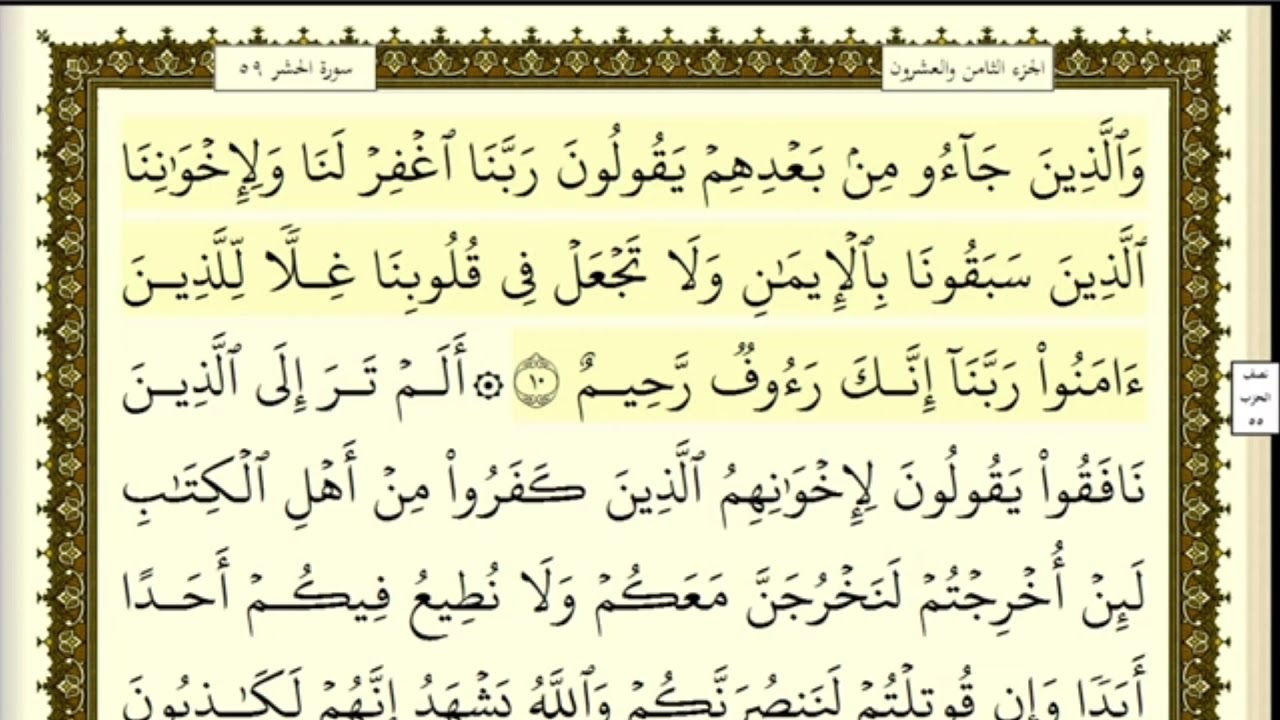 الجزء الثامن والعشرون
سورة الحشر ٥٩
وَٱلَّذِينَ جَآءُو مِنۢ بَعْدِهِمْ يَقُولُونَ رَبَّنَا ٱغْفِرْ لَنَا وَلِإِخْوَٰنِنَا
ٱلَّذِينَ سَبَقُونَا بِٱلْإِيمَٰنِ وَلَا تَجْعَلْ فِى قُلُوبِنَا غِلًّا لِّلَّذِينَ
ءَامَنُوا۟ رَبَّنَآ إِنَّكَ رَءُوفٌ رَّحِيمٌ ١٠ ۞ أَلَمْ تَرَ إِلَى ٱلَّذِينَ
نَافَقُوا۟ يَقُولُونَ لِإِخْوَٰنِهِمُ ٱلَّذِينَ كَفَرُوا۟ مِنْ أَهْلِ ٱلْكِتَٰبِ
لَئِنْ أُخْرِجْتُمْ لَنَخْرُجَنَّ مَعَكُمْ وَلَا نُطِيعُ فِيكُمْ أَحَدًا
أَبَدًا وَإِن قُوتِلْتُمْ لَنَنصُرَنَّكُمْ وَٱللَّهُ يَشْهَدُ إِنَّهُمْ لَكَٰذِبُونَ
نصف
الحزب
٥٥